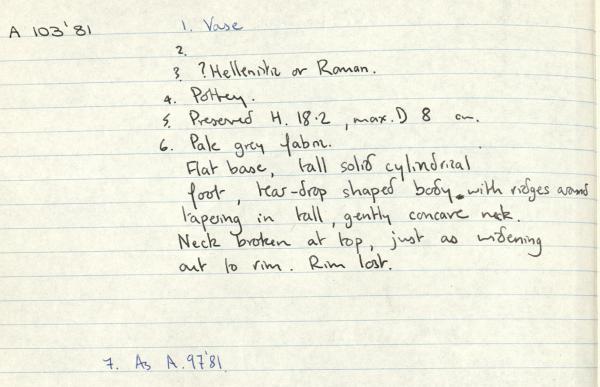 A 103'81
1. Vase
2.
3. ? Hellenistic or Roman.
4. Pottery.
5. Preserved H. 18.2, max. D 8 cm.
6. Pale grey fabric.
Flat base, tall solid cylindrical
foot, tear-drop shaped body, with ridges around
tapering in tall, gently concave neck.
Neck broken at top, just as widening
out to rim. Rim lost.
7. As A.97'81